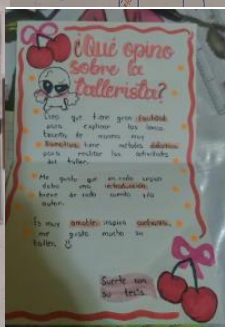 ¿Qué opino
sobre la
tallerista?
Creo que tiene gran facilidad
para explicar los temas
tiene métodos didácticos
para realizar las actividades
del taller.
Me gusta que en cada sesión
daba una introducción
breve de cada cuento y/o
autor.
Es muy amable, inspira confianza,
me gustó mucho su
taller.
Suerte con
su tesis